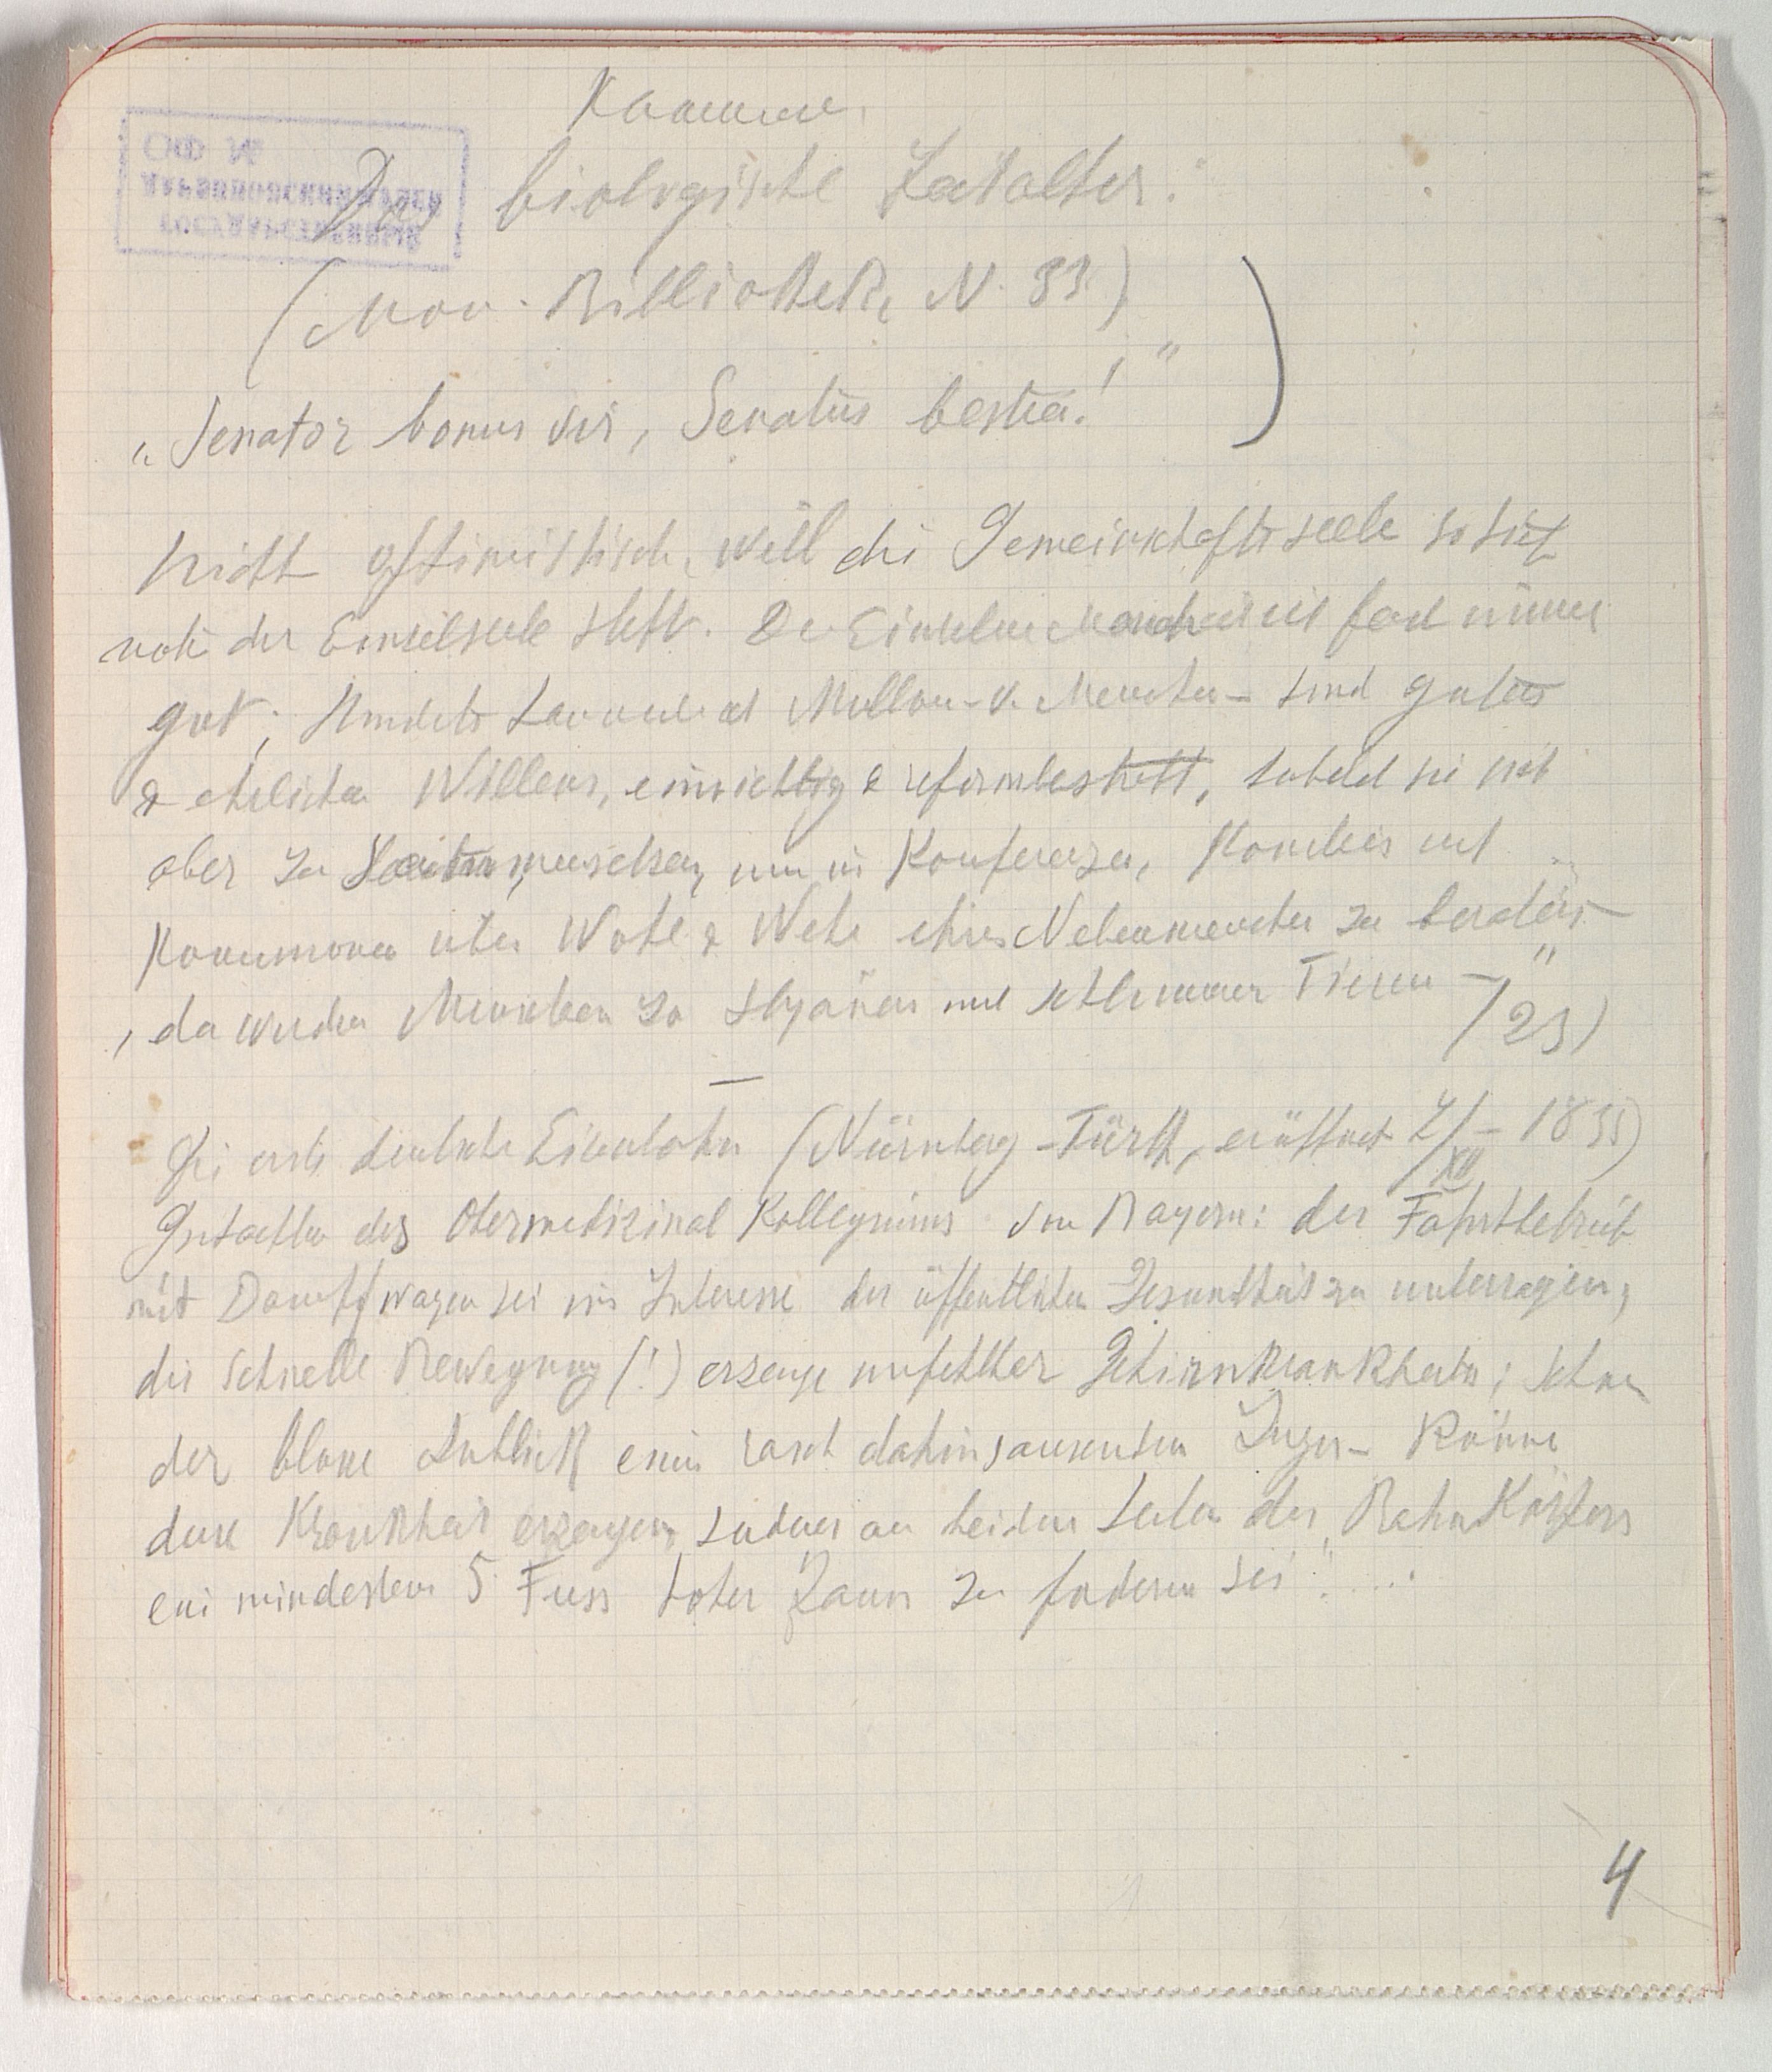 Kammerer
Das biologische Zeitalter.
(Mon. Bibliothek, N. 33)
„Senator bonus vir, Senatus bestia!“
Nicht optimistisch, weil die Gemeinschaftsseele so tief
unter der Einzelseele steht. Der Einzelne Mensch ist fast immer
gut; Hunderte Tausende und Millionen v. Menschen – sind guten
& ehrlichen Willens, einsichtig & reformbestrebt, sobald sie sich
aber zu um in Konferenzen, Komitees und
Kommissionen über Wohl & Wehe ihrer Nebenmenschen zu beraten –
„da werden Menschen zu Hyänen und schlimmeren Tieren –“
/23)
Die erste deutsche Eisenbahn (Nürnberg - Fürth, eröffnet 7/XII – 1835)
Gutachten des Obermedizinal Kollegiums von Bayern: der Fahrtbetrieb
mit Dampfwagen sei im Interesse der öffentlichen Gesundheit zu untersagen;
die schnelle Bewegung (!) erzeuge unfehlbar Gehirnkrankheiten; schon
der blosse Anblick eines rasch dahinsausenden Zuges – könne
diese Krankheit erzeugen, sodass an beiden Seiten des Bahnkörpers
ein mindestens 5 Fuss hoher Zaun zu fordern sei“!....
4